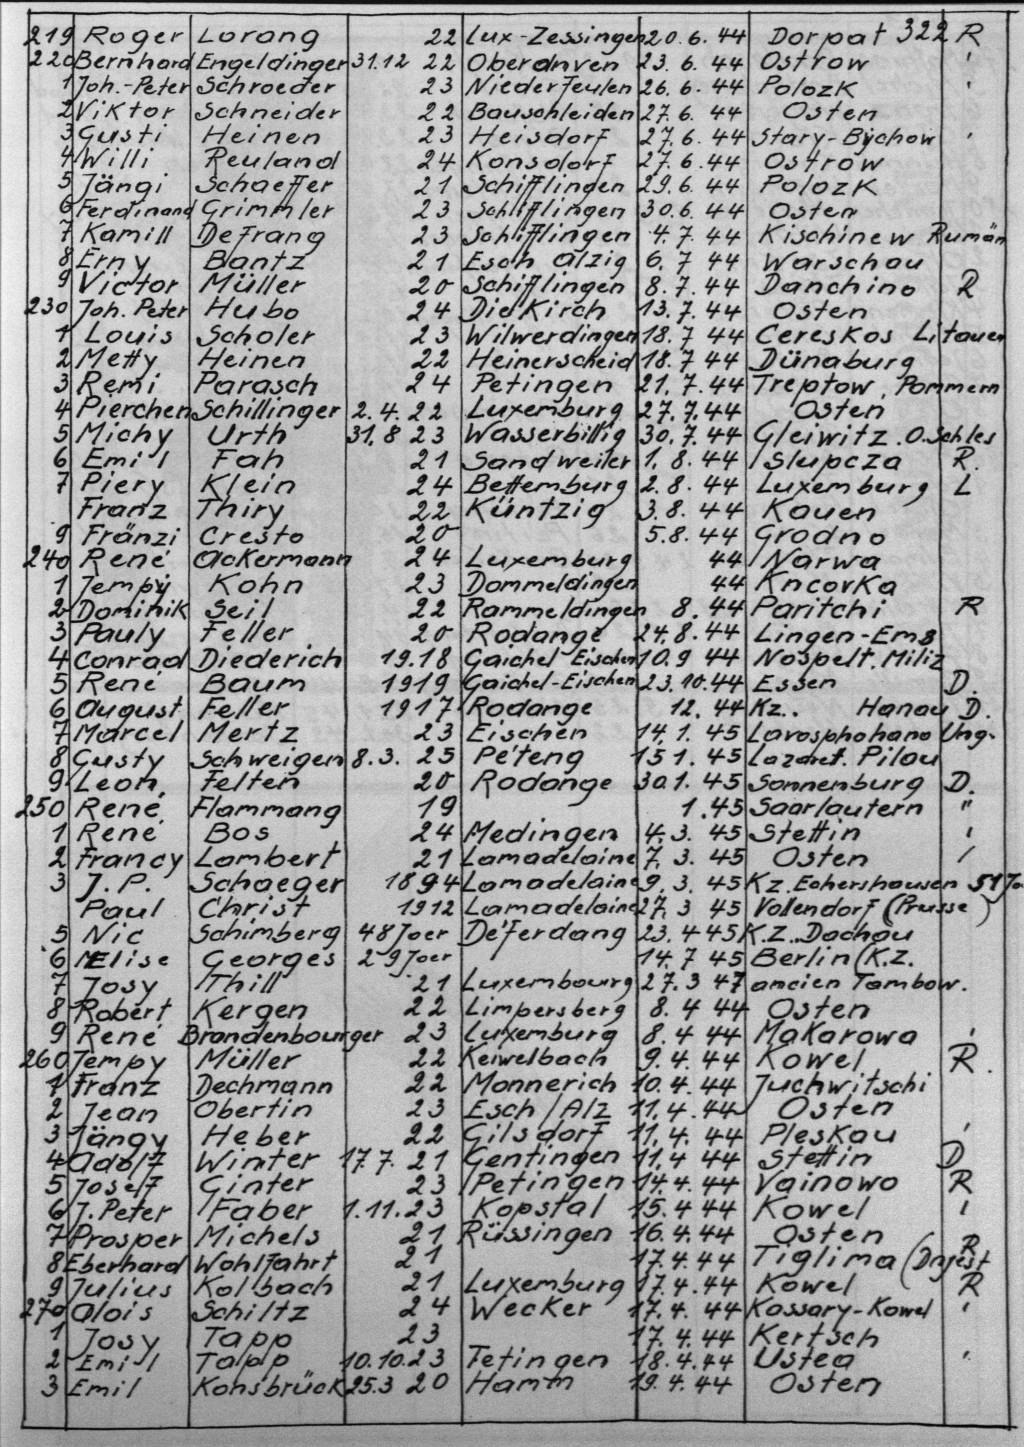 219 Roger Lorang 22 Lux-Zessingen 20.6.44 Dorpat 322 R
220 Bernhard Engeldinger 31.12 22 Oberanven 23.6.44 Ostrow '
1 Joh.-Peter Schroeder 23 Niederfeulen 26.6.44 Polozk '
2 Viktor Schneider 22 Bauschleiden 27.6.44 Osten
3 Gusti Heinen 23 Heisdorf 27.6.44 Stary-Bychow '
4 Willi Reuland 24 Konsdorf 27.6.44 Ostrow
5 Jängi Schaeffer 21 Schifflingen 29.6.44 Polozk
6 Ferdinand Grimmler 23 Schifflingen 30.6.44 Osten
7 Kamill Defrang 23 Schifflingen 4.7.44 Kischinew Rumän
8 Erny Bantz 21 Esch Alzig 6.7 44 Warschau
9 Victor Müller 20 Schifflingen 8.7.44 Danchino R
230 Joh. Peter Hubo 24 Diekirch 13.7.44 Osten
1 Louis Scholer 23 Wilwerdingen 18.7 44 Cereskos Litauen
2 Metty Heinen 22 Heinerscheid 18.7 44 Dünaburg
3 Remi Parasch 24 Petingen 21.7.44 Treptow, Pommern
4 Pierchen Schillinger 2.4. 22 Luxemburg 27.7.44 Osten
5 Michy Urth 31.8 23 Wasserbillig 30.7.44 Gleiwitz. O.Schles
6 Emil Fah 21 Sandweiler 1.8.44 Slupcza R.
7 Piery Klein 24 Bettemburg 2.8.44 Luxemburg L
Franz Thiry 22 Küntzig 3.8.44 Kauen
9 Fränzi Cresto 20 5.8.44 Grodno
240 René Ackermann 24 Luxemburg 44 Narwa
1 Jempy Kohn 23 Dommeldingen 44 Kncovka
2 Dominik Seil 22 Rammeldingen 8.44 Paritchi R
3 Pauly Feller 20 Rodange 24.8.44 Lingen-Ems
4 Conrad Diederich 19.18 Gaichel Eischen 10.9 44 Nospelt. Miliz
5 René Baum 1919 Gaichel-Eischen 23.10.44 Essen D.
6 August Feller 1917 Rodange 12.44 Kz.. Hanau D.
7 Marcel Mertz 23 Eischen 14.1.45 Lavosphohano Ung.
8 Gusty Schweigen 8.3. 25 Péteng 15 1.45 Lazaret. Pilau
9 Leon. Felten 20 Rodange 30.1.45 Sonnenburg D.
250 René Flammang 19 1.45 Saarlautern "
1 René Bos 24 Medingen 4.3.45 Stettin '
2 Francy Lambert 21 Lamadelaine 7.3.45 Osten /
3 J.P. Schaeger 1894 Lamadelaine 9.3.45 Kz. Echershausen 51 Jo
Paul Christ 1912 Lamadelaine 27.3 45 Vollendorf (Prusse)
5 Nic Schimberg 48 Joer Déferdang 23.4 45 K.Z. Dachau
6 MElise Georges 29 Joer 14.7 45 Berlin (K.Z.
7 Josy Thill 21 Luxembourg 27.3 47 ancien Tambow.
8 Robert Kergen 22 Limpersberg 8.4 44 Osten
9 René Brandenbourger 23 Luxemburg 8.4 44 Makarowa '
260 Jempy Müller 22 Keiwelbach 9.4.44 Kowel R.
1 Franz Dechmann 22 Monnerich 10.4.44 Juchwitschi
2 Jean Obertin 23 Esch/Alz 11.4.44 Osten
3 Jängy Heber 22 Gilsdorf 11.4.44 Pleskau '
4 Adolf Winter 17.7. 21 Gentingen 11.4 44 Stettin D
5 Josef Ginter 23 Petingen 14.4.44 Vainowo R
6 J.Peter Faber 1.11.23 Kopstal 15.4 44 Kowel '
7 Prosper Michels 21 Rüssingen 16.4.44 Osten
8 Eberhard Wohlfahrt 21 17.4.44 Tiglima (Dnjest R
9 Julius Kolbach 21 Luxemburg 17.4.44 Kowel R
270 Alois Schiltz 24 Wecker 17.4.44 Kossary-Kowel '
1 Josy Tapp 23 17.4.44 Kertsch
2 Emil Tapp 10.10.23 Tetingen 18.4.44 Ustea '
3 Emil Konsbrück 25.3 20 Hamm 19.4.44 Osten